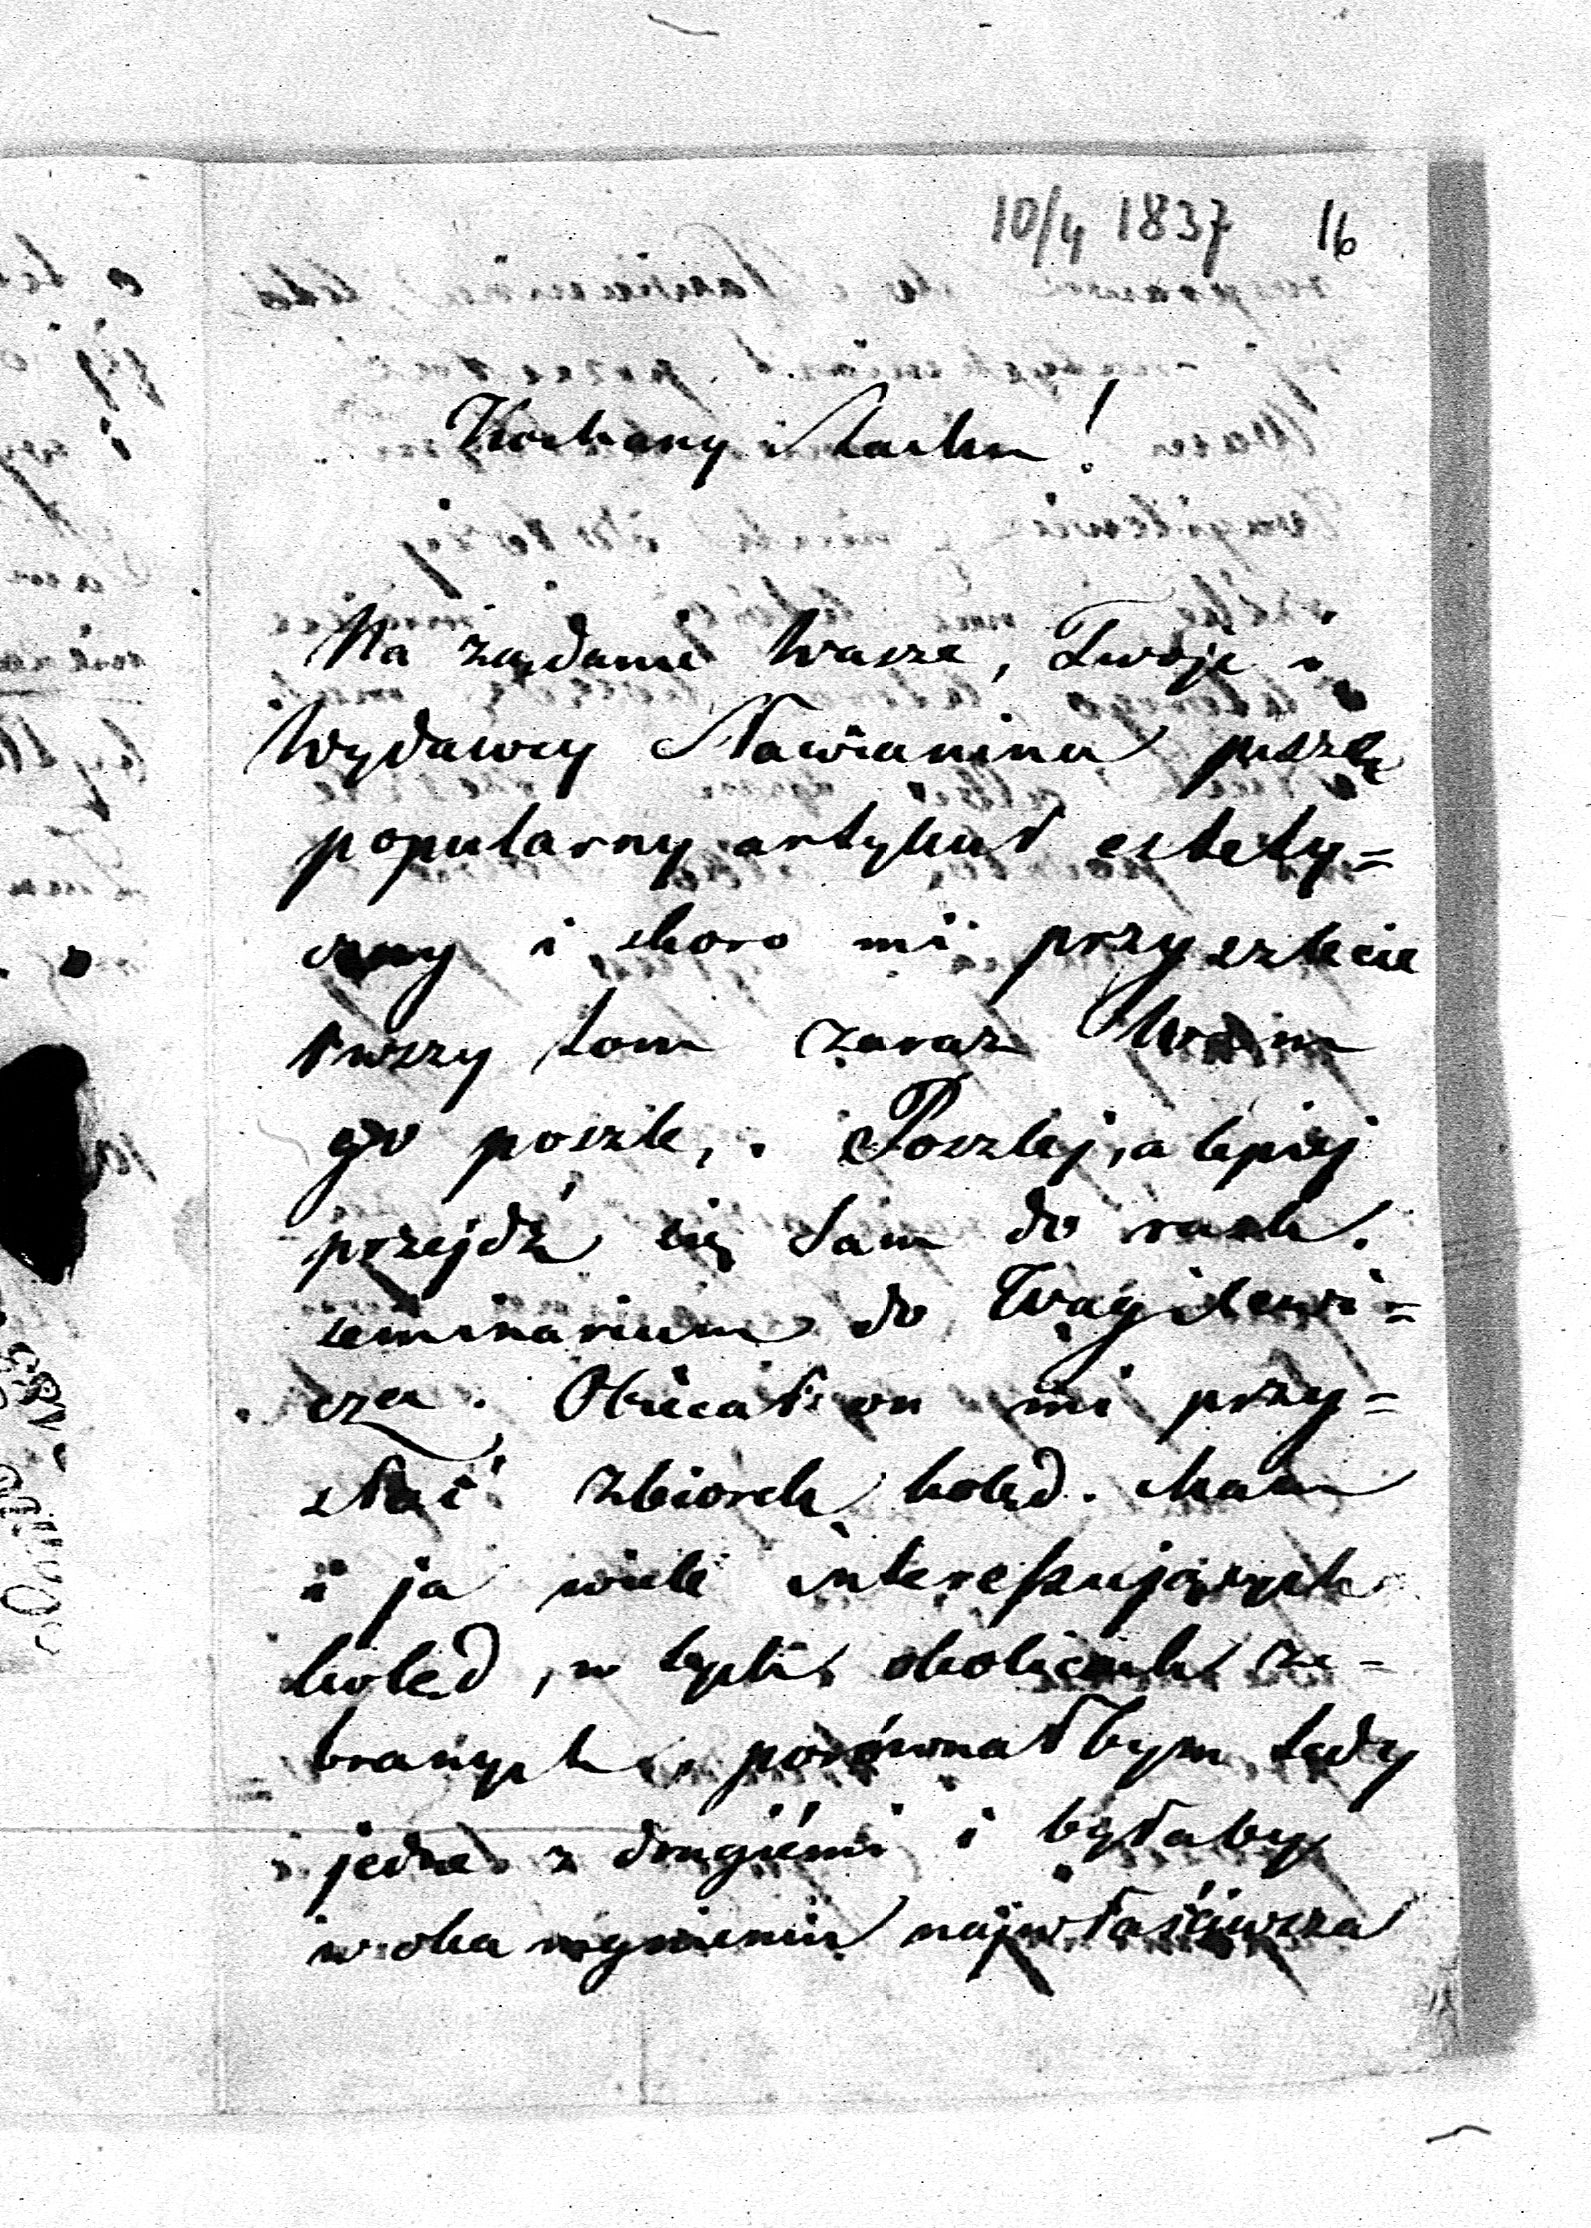 10/4 1837 16
Kochany Stachu!
Na żądanie Wasze, Twoje i
Wydawcy Sławianina piszę
popularny artykuł estety=
czny i skoro mi przyszlecie
1wszy tom zaraz Wam
go poszlę. Poszlej, a lepiej
przejdź się sam do rusk.
seminarium do Wagilewi=
cza. Obiecał on mi przy=
słać zbiorek kolęd. Mam
i ja wiele interessujących
kolęd, w tych okolicach ze=
branych, porównałbym tedy
jedne z drugiémi i byłaby
w oka mgnieniu najwłaściwsza